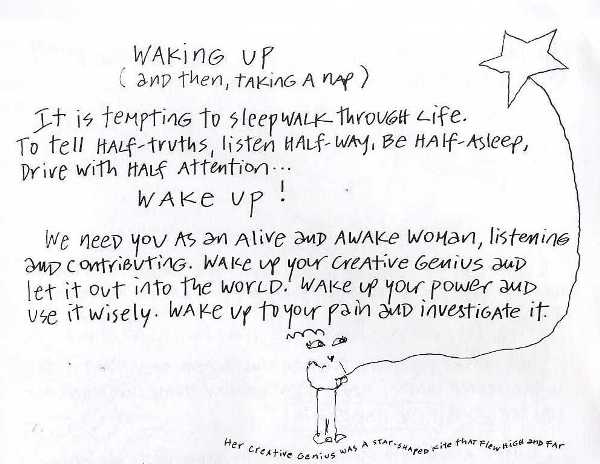 WAKING UP
(and then, TAKING A NAP)
It is tempting to sleepWALK through Life.
To tell HALF-truths, listen HALF-WAY, Be HALF-Asleep,
Drive with HALF Attention...
WAKE UP!
We need you As an Alive and AWAKE WOMAN, listening
and contributing. WAKE up your creative Genius and
let it out into the WORLD. WAKE up your power and
use it wisely. WAKE up to your pain and investigate it.
Her creative Genius was A STAR-SHAPED Kite that Flew High and Far